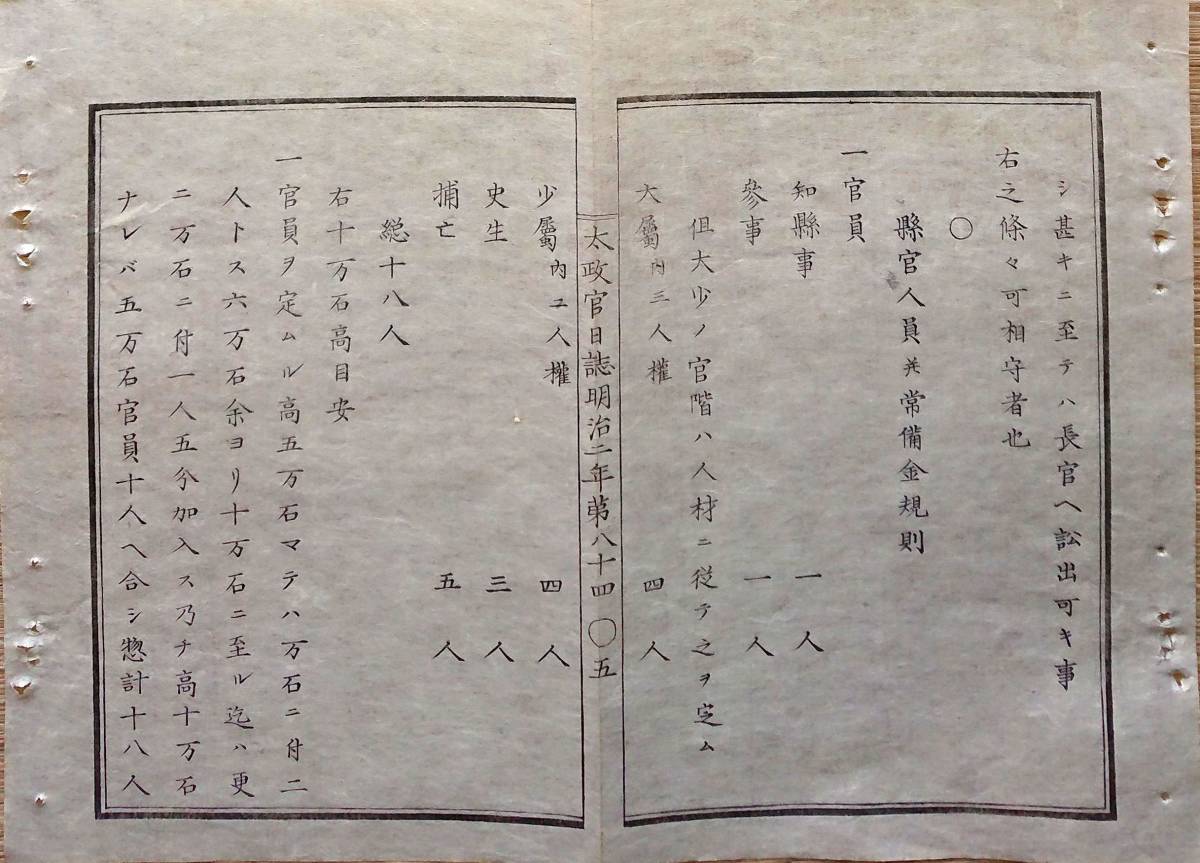 シ甚キニ至テハ長官ヘ訟出可キ事
右之條々可相守者也
〇
縣官人員幷常備金規則
一官員
知縣事 一人
參事 一人
但大少ノ官階ハ人材ニ従テ之ヲ定ム
大屬内三人權 四人
太政官日誌明治二年第八十四 〇五
少屬内二人權 四人
史生 三人
捕亡 五人
総十八人
右十万石高目安
一官員ヲ定ムル高五万石マテハ万石ニ付二
人トス六万石余ヨリ十万石ニ至ル迄ハ更
ニ万石ニ付一人五分加入ス乃チ高十万石
ナレバ五万石官員十人ヘ合シ惣計十八人